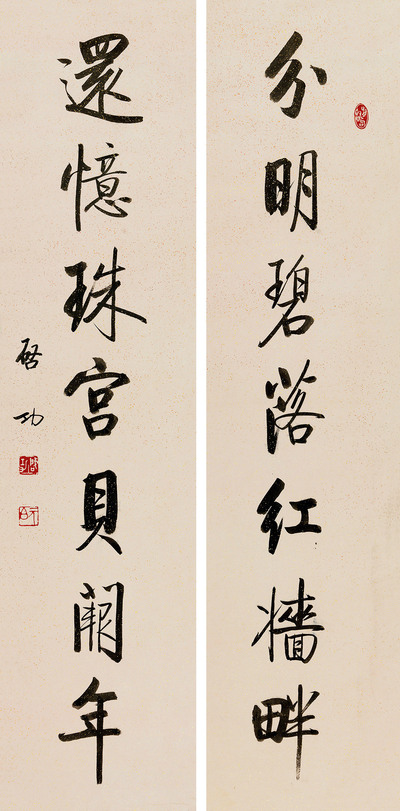 分明碧落红牆畔
還憶珠宮貝闕年
啓功